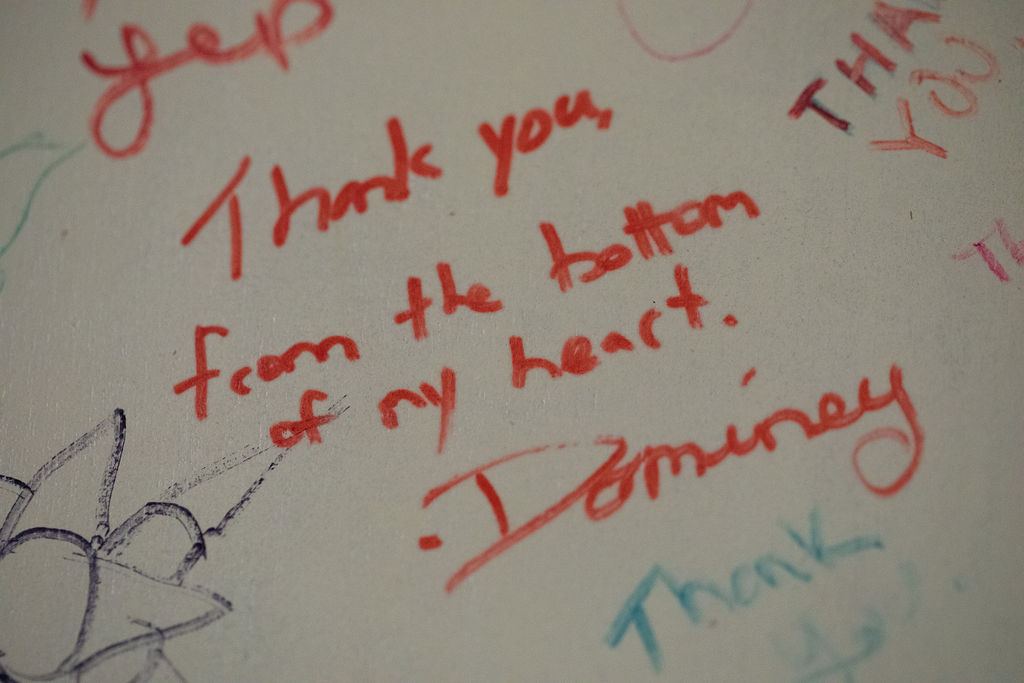 yep
THANK
YOU
Thank you,
from the bottom
of my heart.
. Dominey
Thank
you.